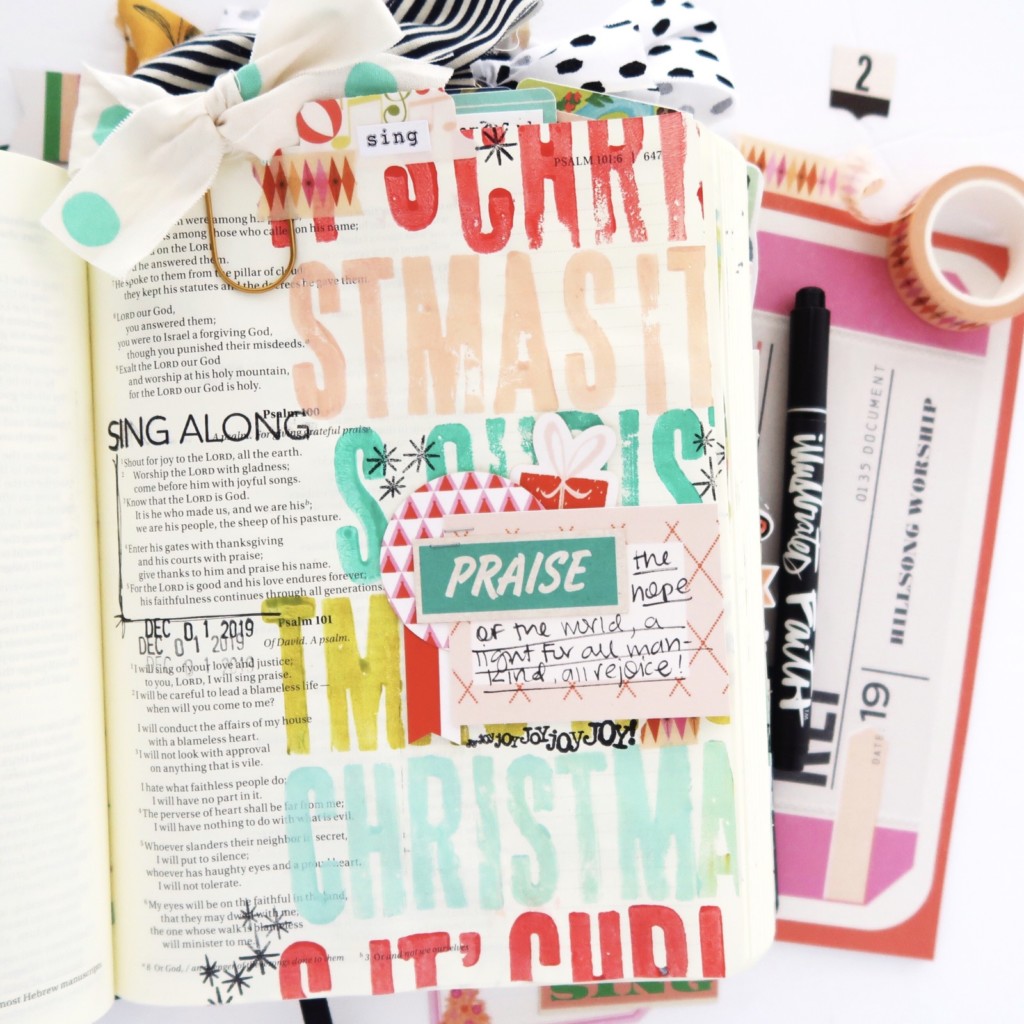 2
sing
PSALM 101:6 | 647
on the LORD
he answered them.
⁷He spoke to them from the pillar of cloud;
they kept his statutes and the decrees he gave them.
⁸LORD our God,
you answered them;
you were to Israel a forgiving God,
though you punished their misdeeds.
⁹Exalt the LORD our God
and worship at his holy mountain,
for the LORD our God is holy.
STMAS IT
Psalm 100
SING ALONG
A psalm. For giving grateful praise.
¹Shout for joy to the LORD, all the earth.
²Worship the LORD with gladness;
come before him with joyful songs.
³Know that the LORD is God.
It is he who made us, and we are his;
we are his people, the sheep of his pasture.
⁴Enter his gates with thanksgiving
and his courts with praise;
give thanks to him and praise his name.
⁵For the LORD is good and his love endures forever;
his faithfulness continues through all generations.
PRAISE
the
hope
of the world, a
light for all man-
kind, all rejoice!
joy joy Joy joy JOY!
DEC 01 2019
DEC 01 2019
Psalm 101
Of David. A psalm.
¹I will sing of your love and justice;
to you, LORD, I will sing praise.
²I will be careful to lead a blameless life—
when will you come to me?
I will conduct the affairs of my house
with a blameless heart.
³I will not look with approval
on anything that is vile.
I hate what faithless people do;
I will have no part in it.
⁴The perverse of heart shall be far from me;
I will have nothing to do with what is evil.
⁵Whoever slanders their neighbor in secret,
I will put to silence;
whoever has haughty eyes and a proud heart,
I will not tolerate.
⁶My eyes will be on the faithful in the land,
that they may dwell with me;
the one whose walk is blameless
will minister to me.
CHRISTMA
S IT'
b 3 Or and not we ourselves
most Hebrew manuscripts
Illustrated Faith
0135 DOCUMENT
HILLSONG WORSHIP
DATE 19
SING